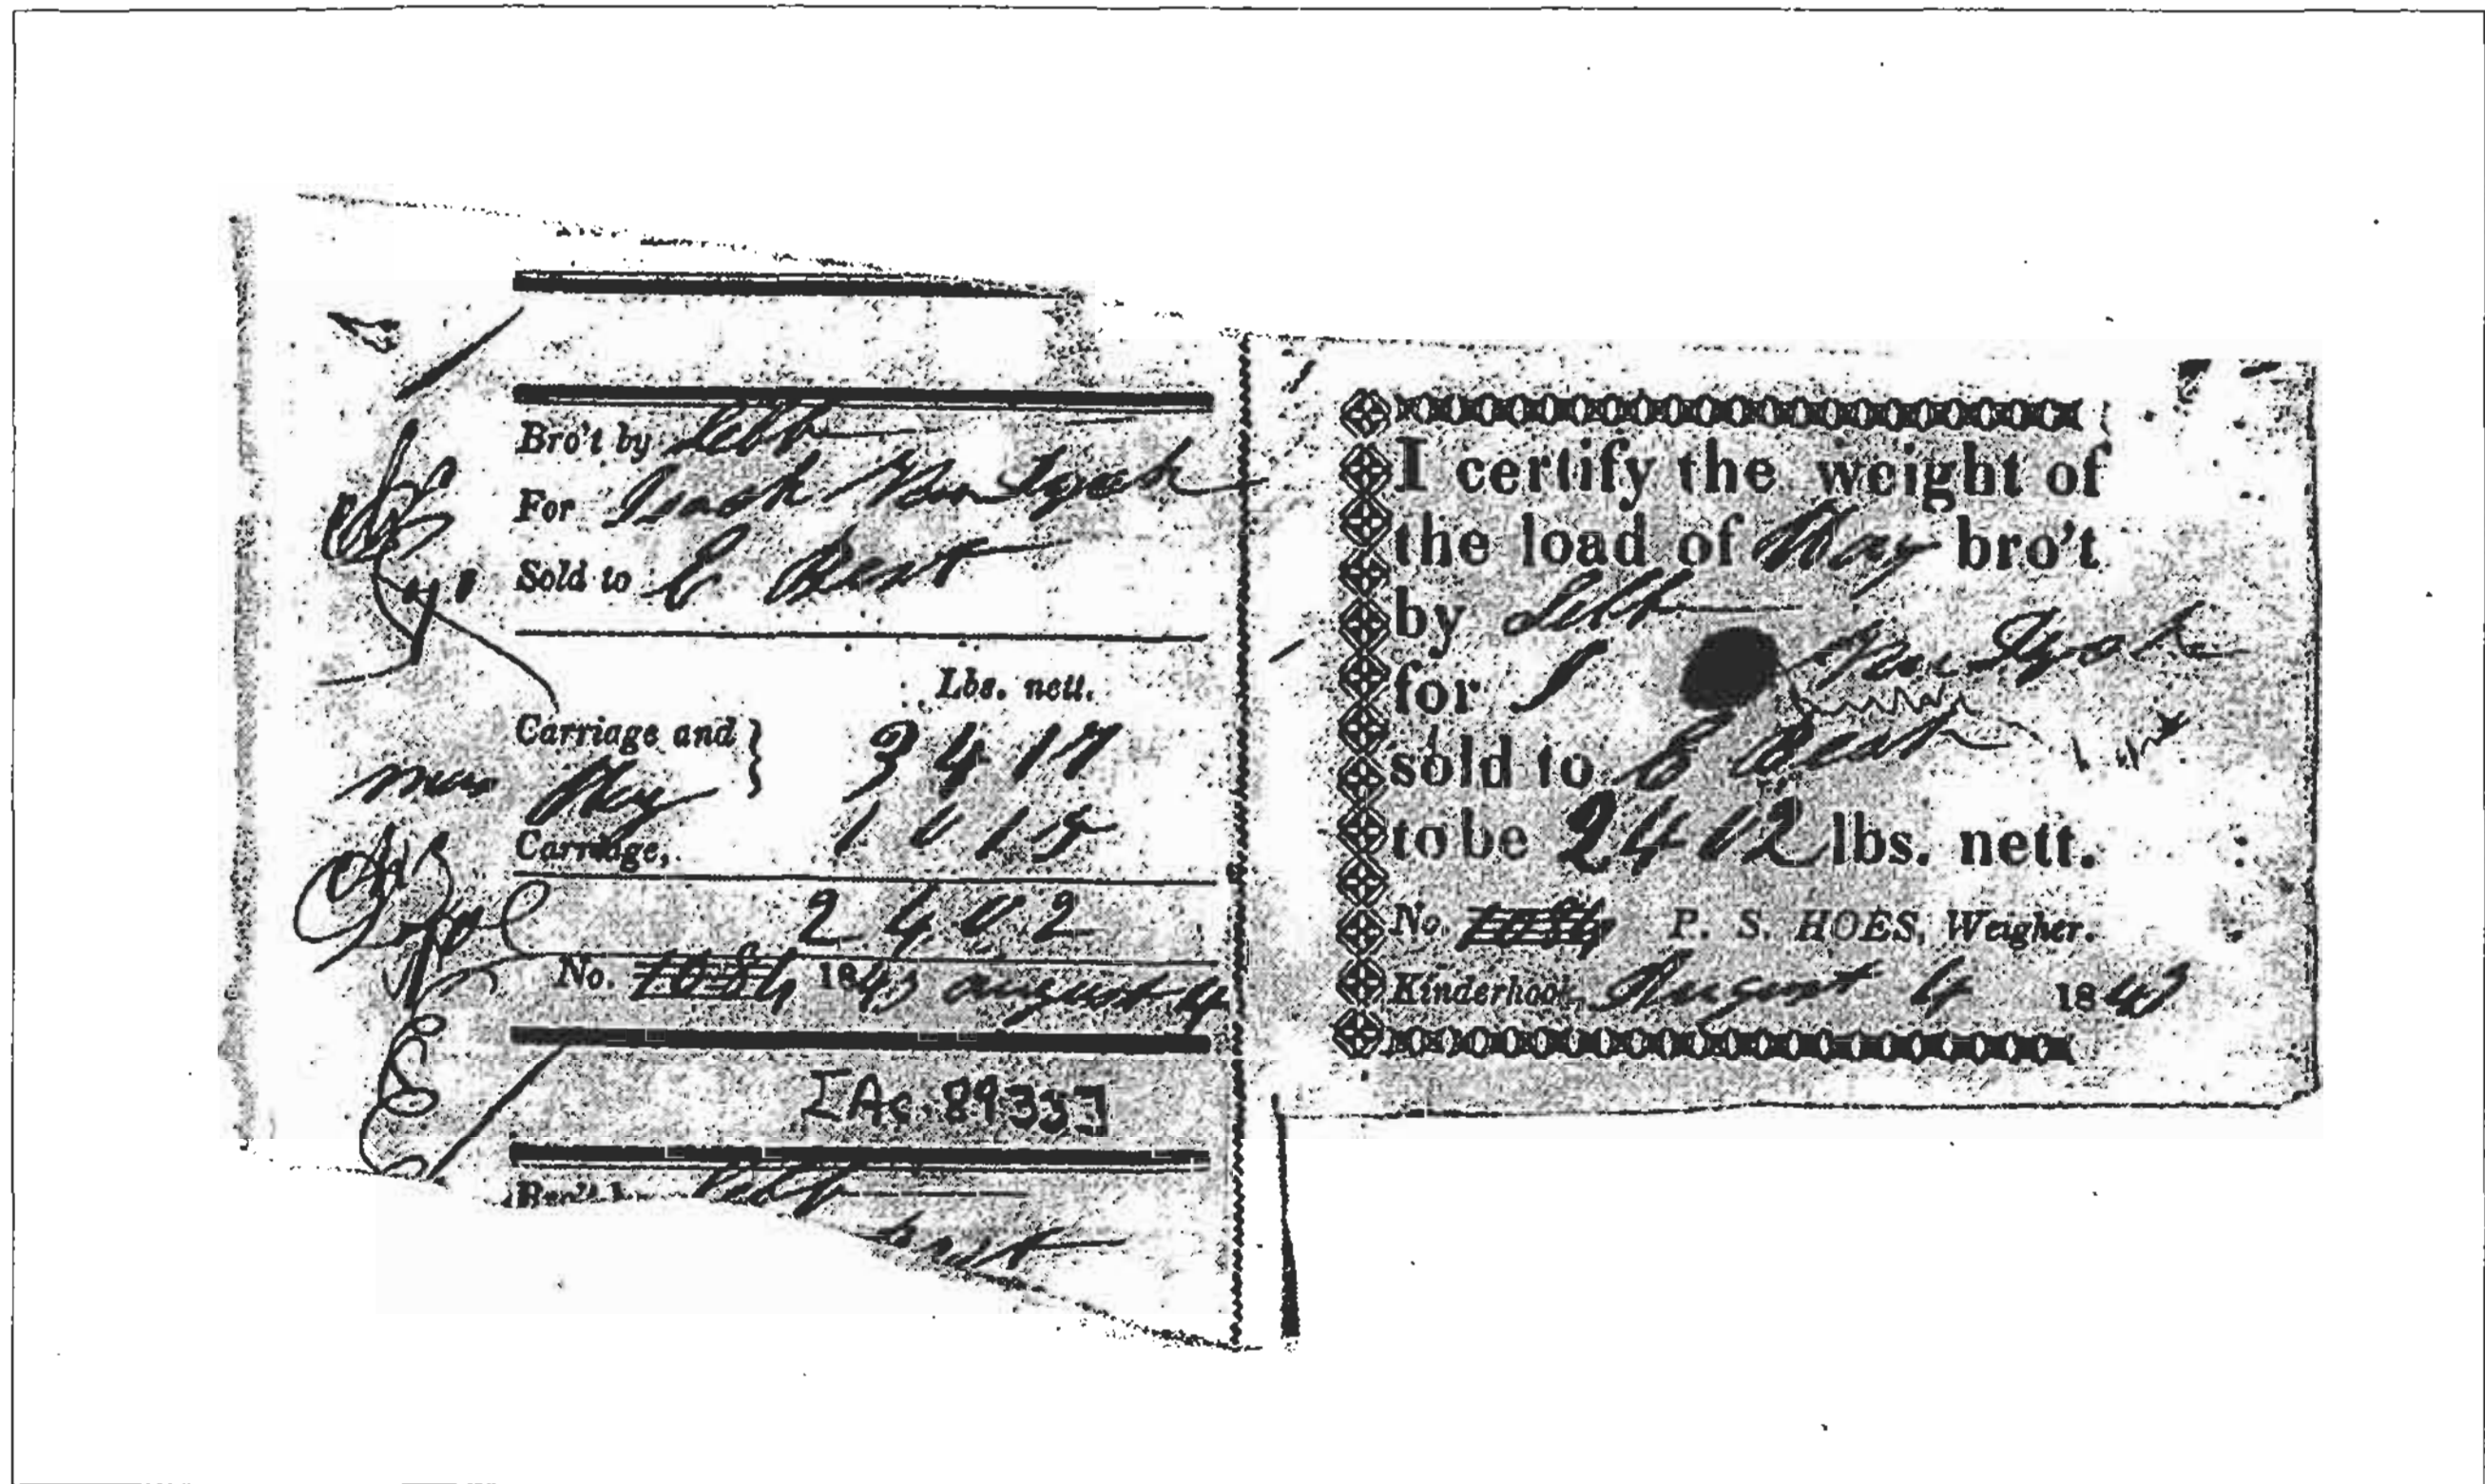 Bro't by Self
For Isaah Van Dyck
Sold to E Best
Lbs. nett.
Carriage and } 3417
Hay
Carriage, 1015
2402
No. 1084 1843 August 4
[Ac. 8933]
Bro't by Self
I certify the weight of
the load of Hay bro't
by Self
for I Van Dyck
sold to E Best
to be 2402 lbs. nett.
No. 1084 P. S. HOES, Weigher.
Kinderhook, August 4 1843